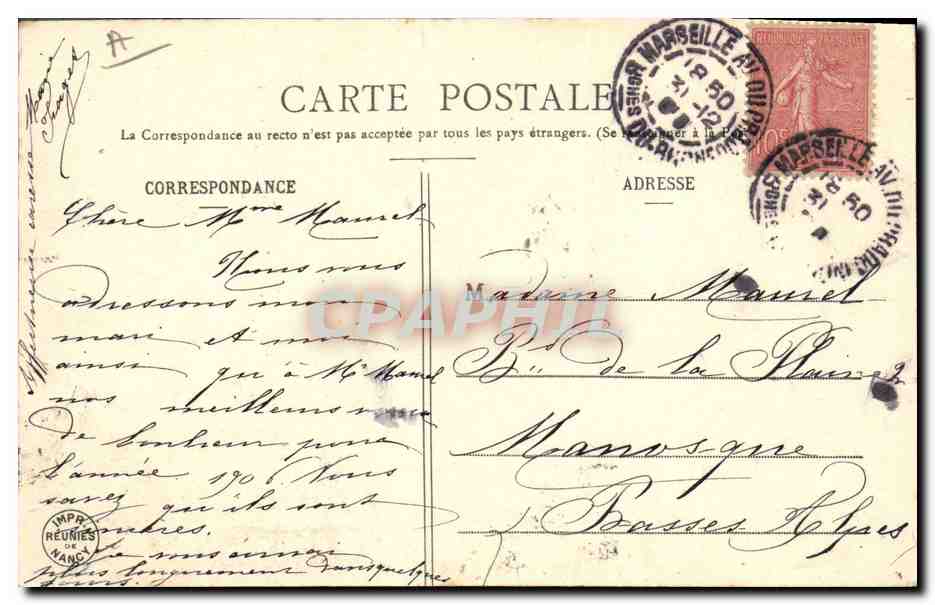 A
CARTE POSTALE
La Correspondance au recto n'est pas acceptée par tous les pays étrangers. (Se renseigner à la Poste)
CORRESPONDANCE
ADRESSE
REPUBLIQUE FRANÇAISE
MARSEILLE AV. DU PRADO
BOUCHES DU RHONE
18 50
31 -12
MARSEILLE AV. DU PRADO
18 50
31
Chère Mme Maurel
Nous vous
adressons mon
mari et moi
ainsi qu'à Mr Maurel
nos meilleurs vœux
de bonheur pour
l'année 1906. Vous
savez qu'ils sont
sincères.
Je vous écrirai
plus longuement dans quelques
jours.
Affectueuse caresse
Madame Maurel
Bd de la Plaine 2
Manosque
Basses Alpes
CPAPHIL
IMPR. REUNIES DE NANCY